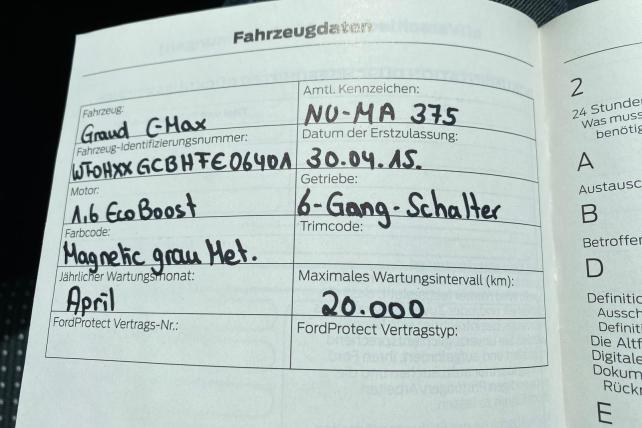 Fahrzeugdaten
Fahrzeug:
Grand C-Max
Amtl. Kennzeichen:
NU-MA 375
Fahrzeug-Identifizierungsnummer:
WF0HXXGCBHFE06401
Datum der Erstzulassung:
30.04.15.
Motor:
1.6 EcoBoost
Getriebe:
6-Gang-Schalter
Farbcode:
Magnetic grau Met.
Trimcode:
Jährlicher Wartungsmonat:
April
Maximales Wartungsintervall (km):
20.000
FordProtect Vertrags-Nr.:
FordProtect Vertragstyp:
2
24 Stunde
Was muss
benötig
A
Austausc
B
Betroffe
D
Definitio
Aussch
Definit
Die Altf
Digitale
Dokum
Rückn
E